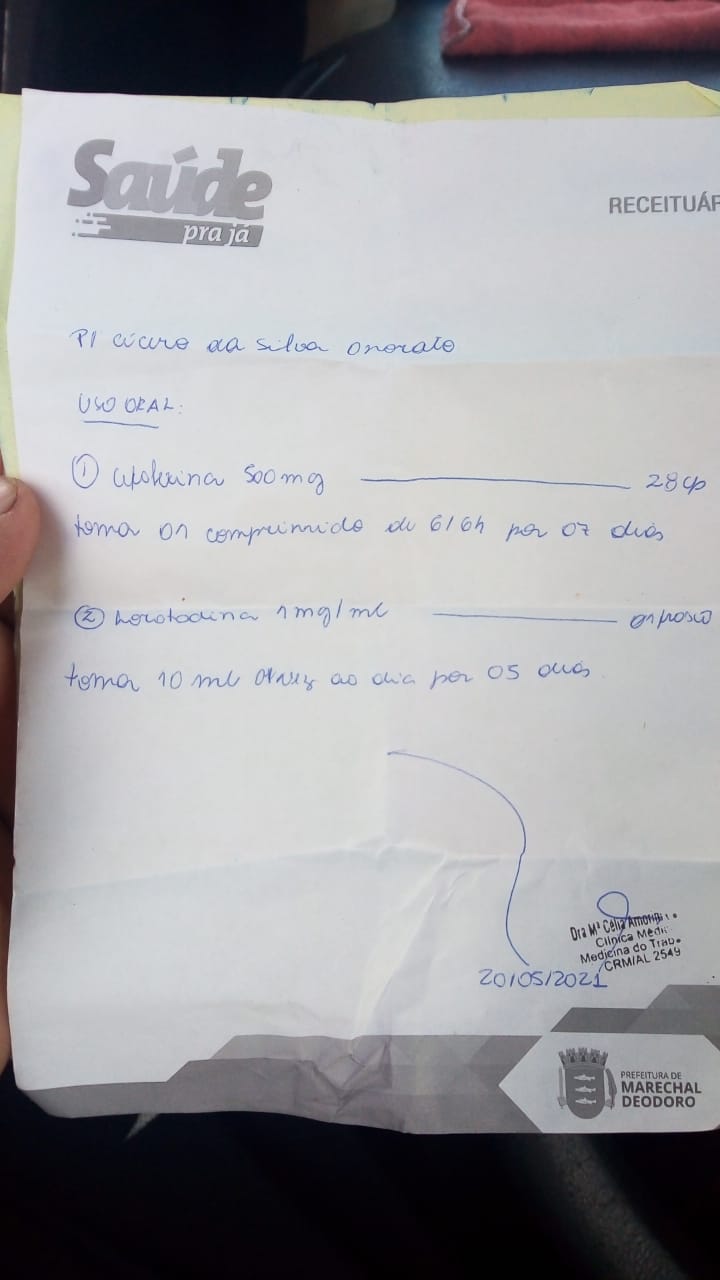 Saúde
pra já
RECEITUÁR
P/ Cícero da Silva Onorato
USO ORAL:
① Cefalexina 500mg ——— 28 cp
toma 01 comprimido de 6/6h por 07 dias
② Loratadina 1mg/ml ——— 01 frasco
toma 10 ml 01 vez ao dia por 05 dias
Dra Mª Célia Amorim
Clínica Médi
Medicina do Trab
CRM/AL 2549
20/05/2021
PREFEITURA DE
MARECHAL
DEODORO